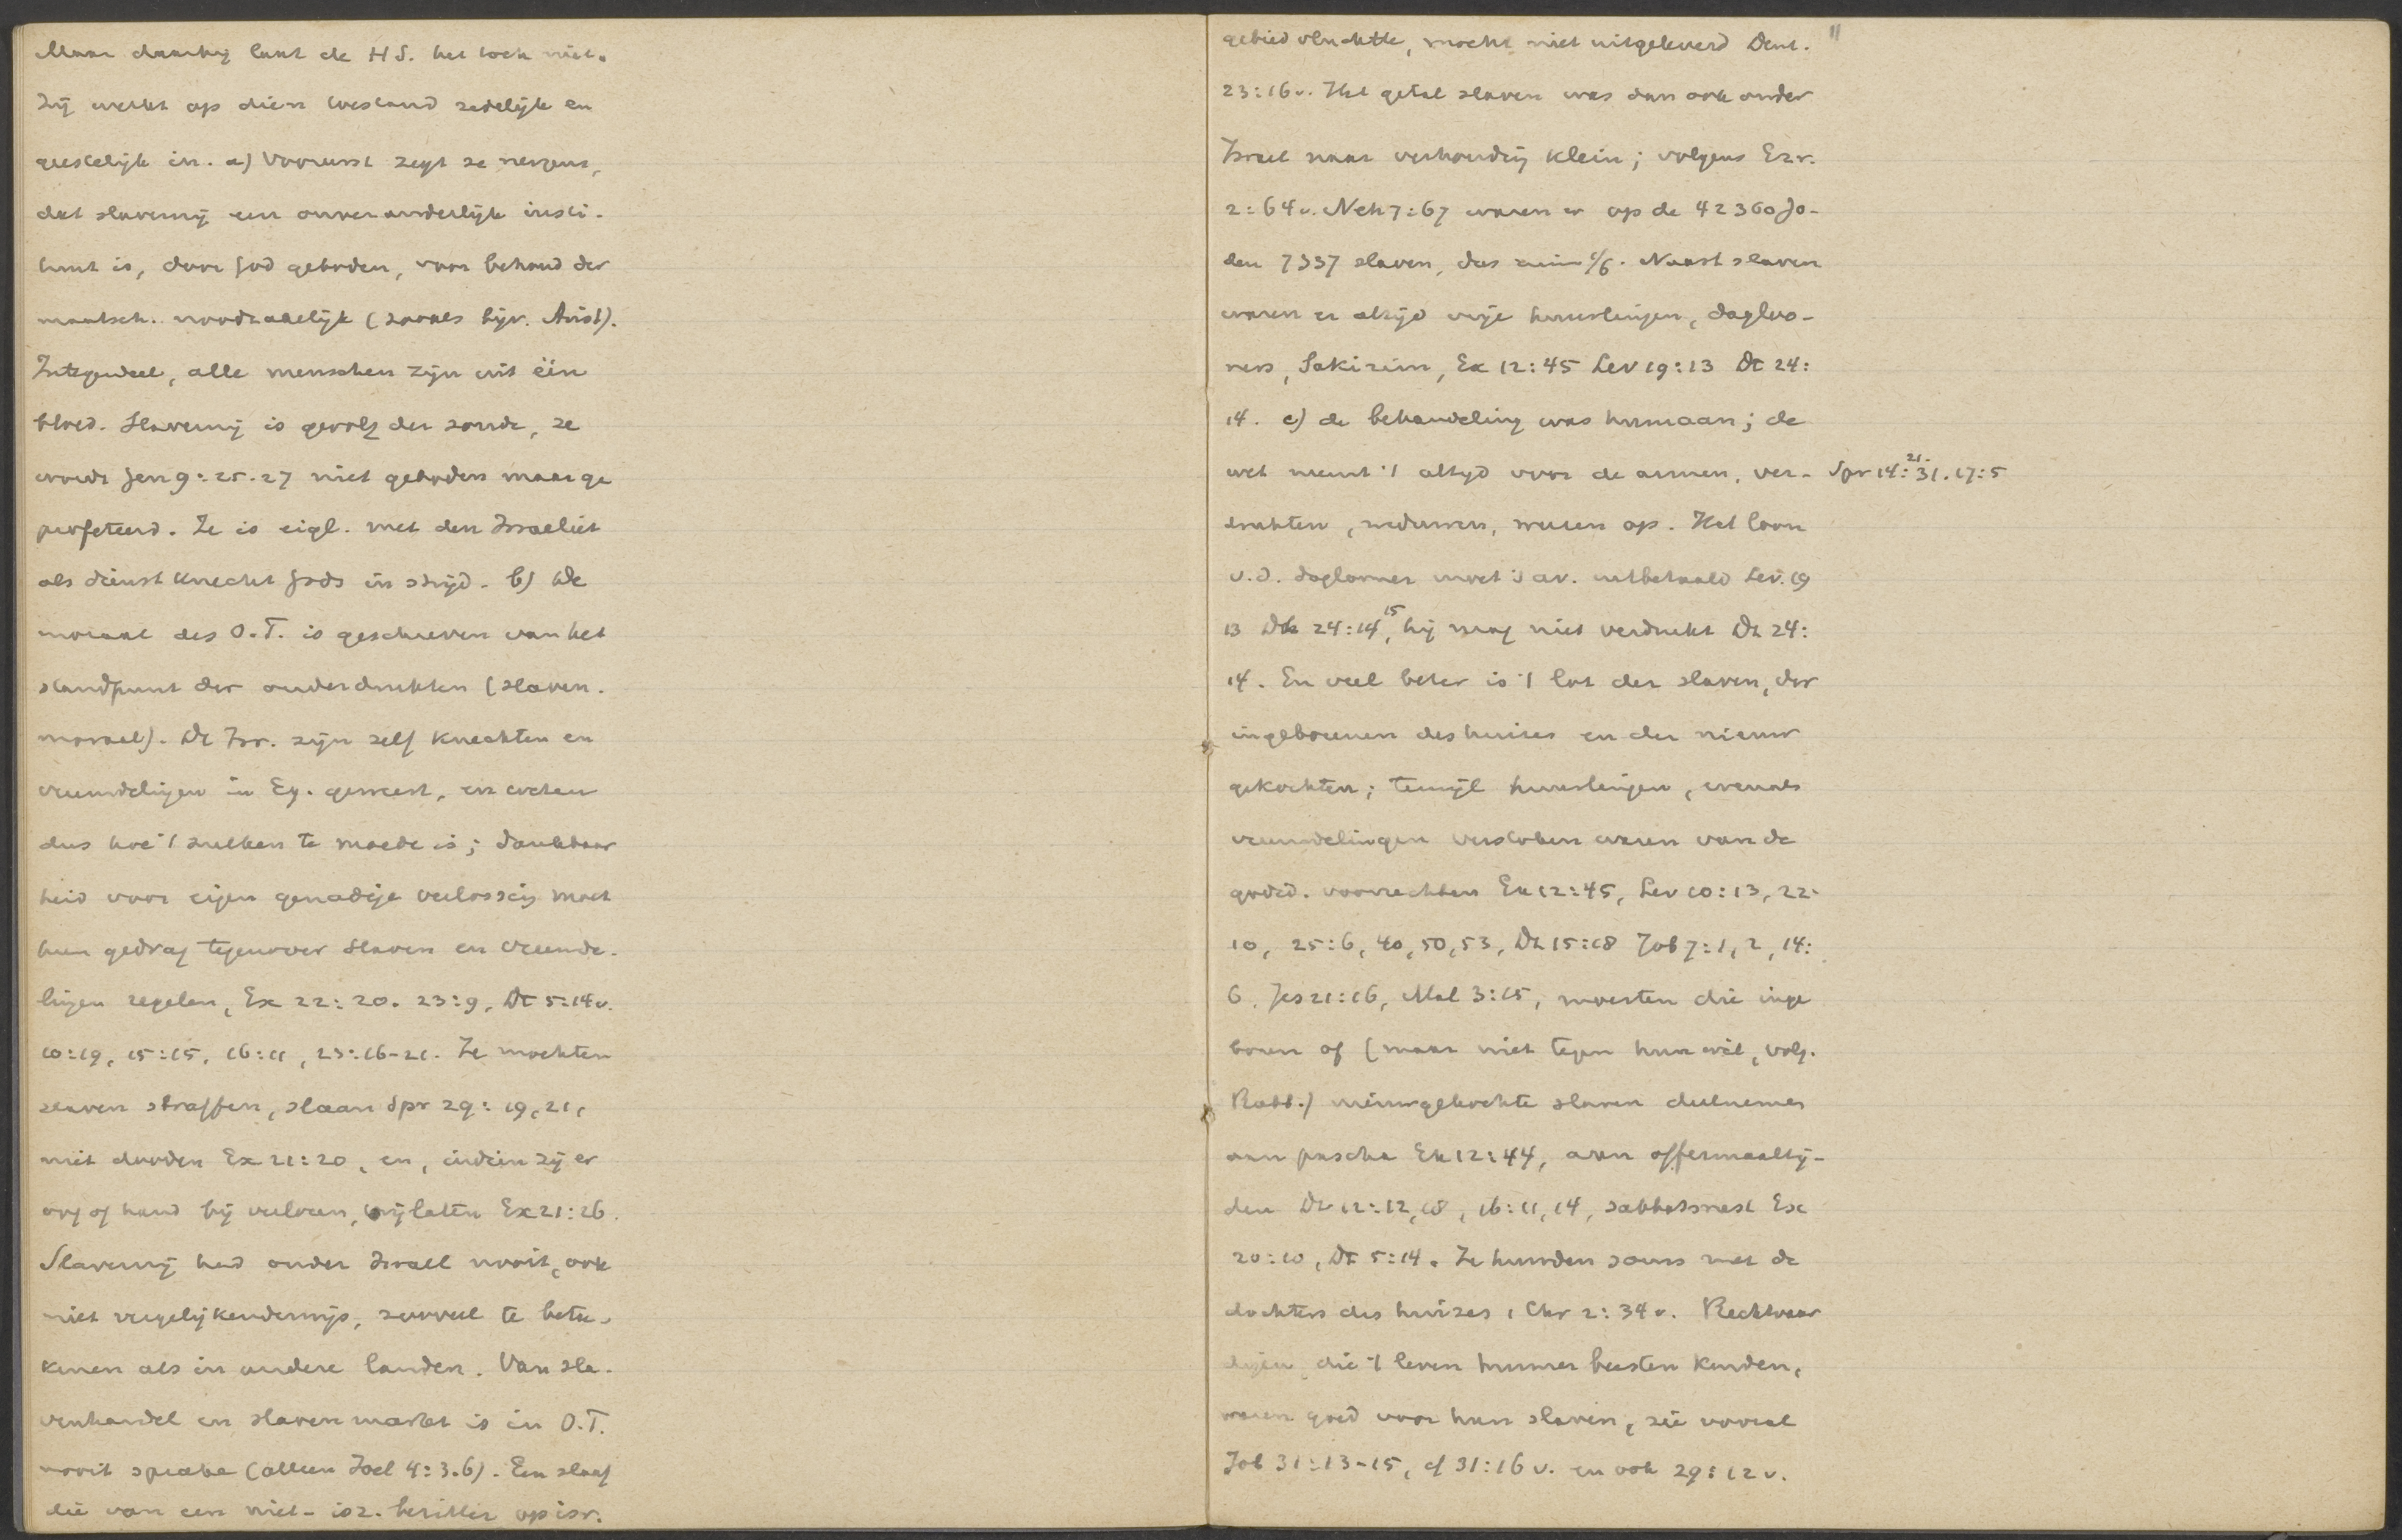 Maar daarbij laat de HS. het toch niet.
Zij werkt op dien toestand zedelijk en
geestelijk in. a) Vooreerst zegt ze nergens,
dat slavernij een onveranderlijk insti-
tuut is, door God geboden, voor behoud der
maatsch. noodzakelijk (zooals bijv. Arist).
Integendeel, alle menschen zijn uit één
bloed. Slavernij is gevolg der zonde, ze
wordt Gen 9:25-27 niet geboden maar ge
profeteerd. Ze is eigl. met den Israeliet
als dienstknecht Gods in strijd. b) De
moraal des O.T. is geschreven van het
standpunt der onderdrukten (slaven-
moraal). De Isr. zijn zelf knechten en
vreemdelingen in Eg. geweest, en weten
dus hoe 't zulken te moede is; dankbaar
heid voor eigen genadige verlossing moet
hun gedrag tegenover slaven en vreemde-
lingen regelen, Ex 22:20. 23:9, Dt 5:14v.
10:19, 15:15, 16:11, 23:16-21. Ze mochten
slaven straffen, slaan Spr 29:19,21,
niet dooden Ex 21:20, en, indien zij er
oog of hand bij verloren, vrijlaten Ex 21:26.
Slavernij had onder Israel nooit, ook
niet vergelijkenderwijs, zooveel te betee-
kenen als in andere landen. Van sla-
venhandel en slavenmarkt is in O.T.
nooit sprake (alleen Joel 4:3.6). Een slaaf
die van een niet-isr. bezitter op isr.
gebied vluchtte, mocht niet uitgeleverd Deut. "
23:16v. Het getal slaven was dan ook onder
Israel naar verhouding klein; volgens Ezr.
2:64v. Neh 7:67 waren er op de 42360 Jo-
den 7337 slaven, dus ruim 1/6. Naast slaven
waren er altijd vrije huurlingen, dagloo-
ners, Sakirim, Ex 12:45 Lev 19:13 Dt 24:
14. c) de behandeling was humaan; de
wet neemt 't altyd voor de armen, ver-
Spr 14:21.31. 17:5
drukten, weduwen, weezen op. Het loon
v.d. daglooner moet 's av. uitbetaald Lev. 19
13 Dt 24:14,15 hij mag niet verdrukt Dt 24:
14. En veel beter is 't lot der slaven, der
ingeborenen des huizes en der nieuw
gekochten; terwijl huurlingen, evenals
vreemdelingen verstoken waren van de
godsd. voorrechten Ex 12:45, Lev 10:13, 22:
10, 25:6, 40, 50, 53, Dt 15:18 Job 7:1, 2, 14:
6, Jes 21:16, Mal 3:15, moesten die inge
boren of (maar niet tegen hun wil, volg.
Rabb.) nieuwgekochte slaven deelnemen
aan pascha Ex 12:44, aan offermaaltij-
den Dt 12:12,18, 16:11,14, sabbatsrust Ex
20:10, Dt 5:14. Ze huwden soms met de
dochters des huizes 1 Chr 2:34v. Rechtvaar
digen, die 't leven hunner beesten kenden,
waren goed voor hun slaven, zie vooral
Job 31:13-15, cf 31:16 v. en ook 29:12v.